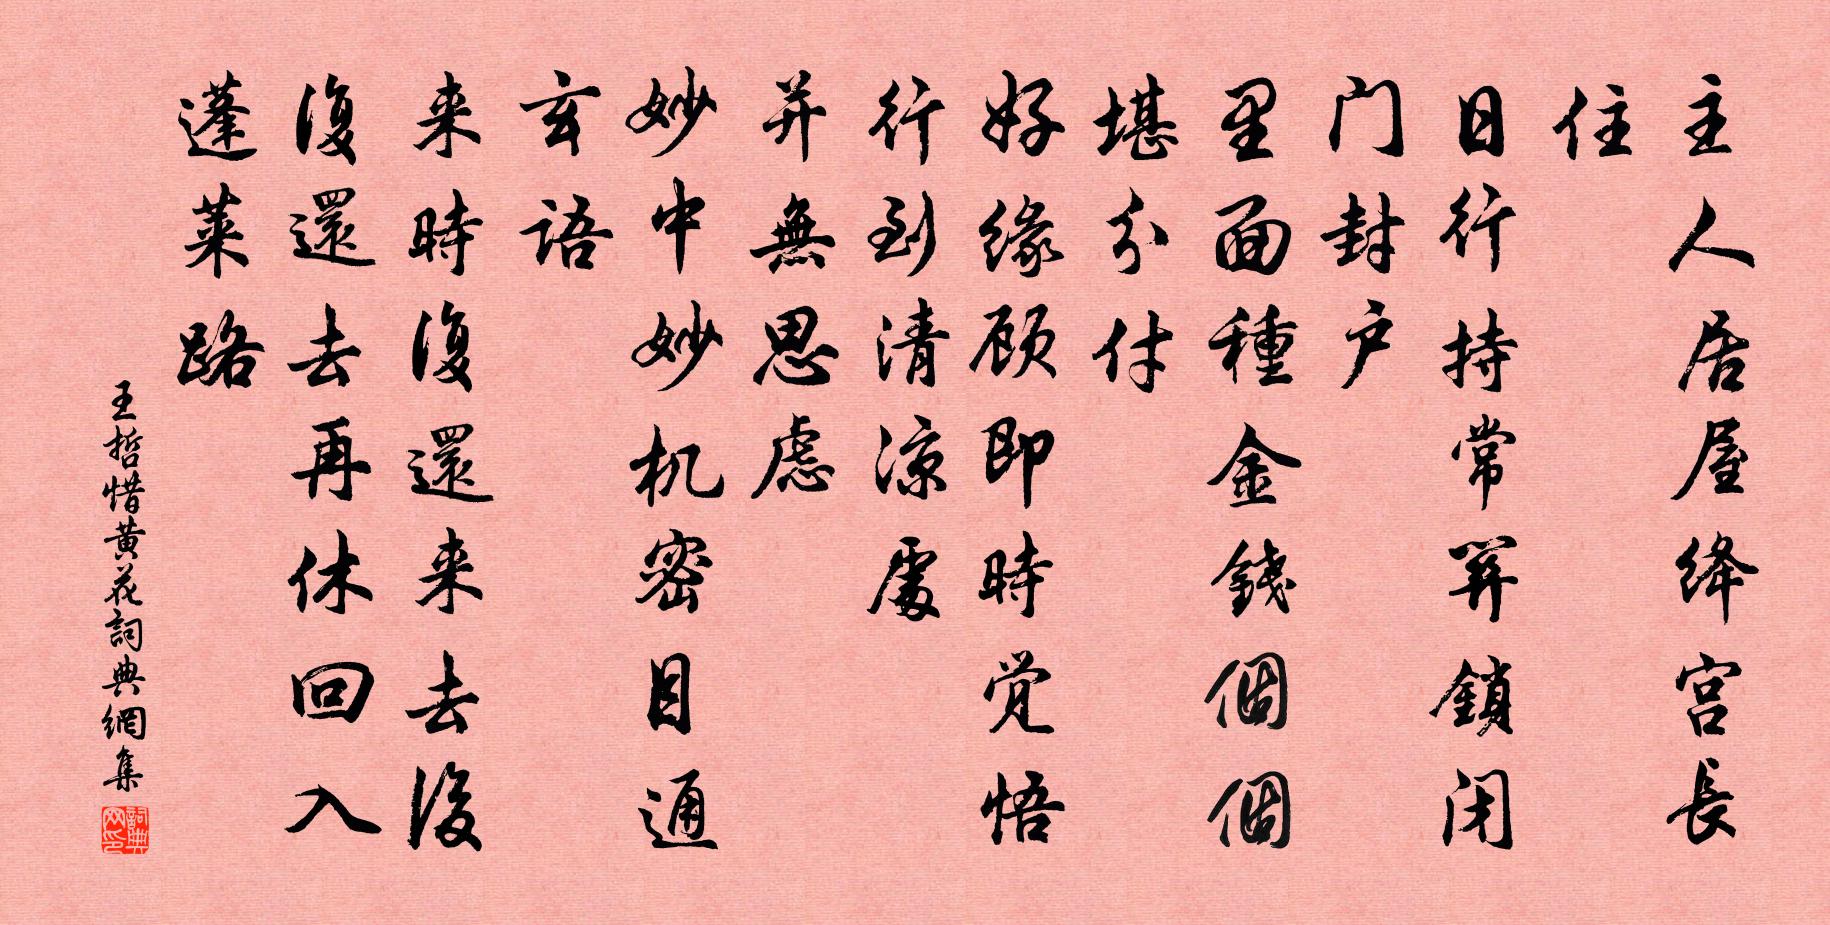 主人居屋绛宫長
住
日行持常開鎖闭
门封户
里面種金錢個個
堪分付
好缘顾即時觉悟
行到清凉處
并無思虑
妙中妙机密目通
玄語
来時復還来去復
復還去再休回入
蓬莱路
王哲惜黄花詞典網集
詞典网印